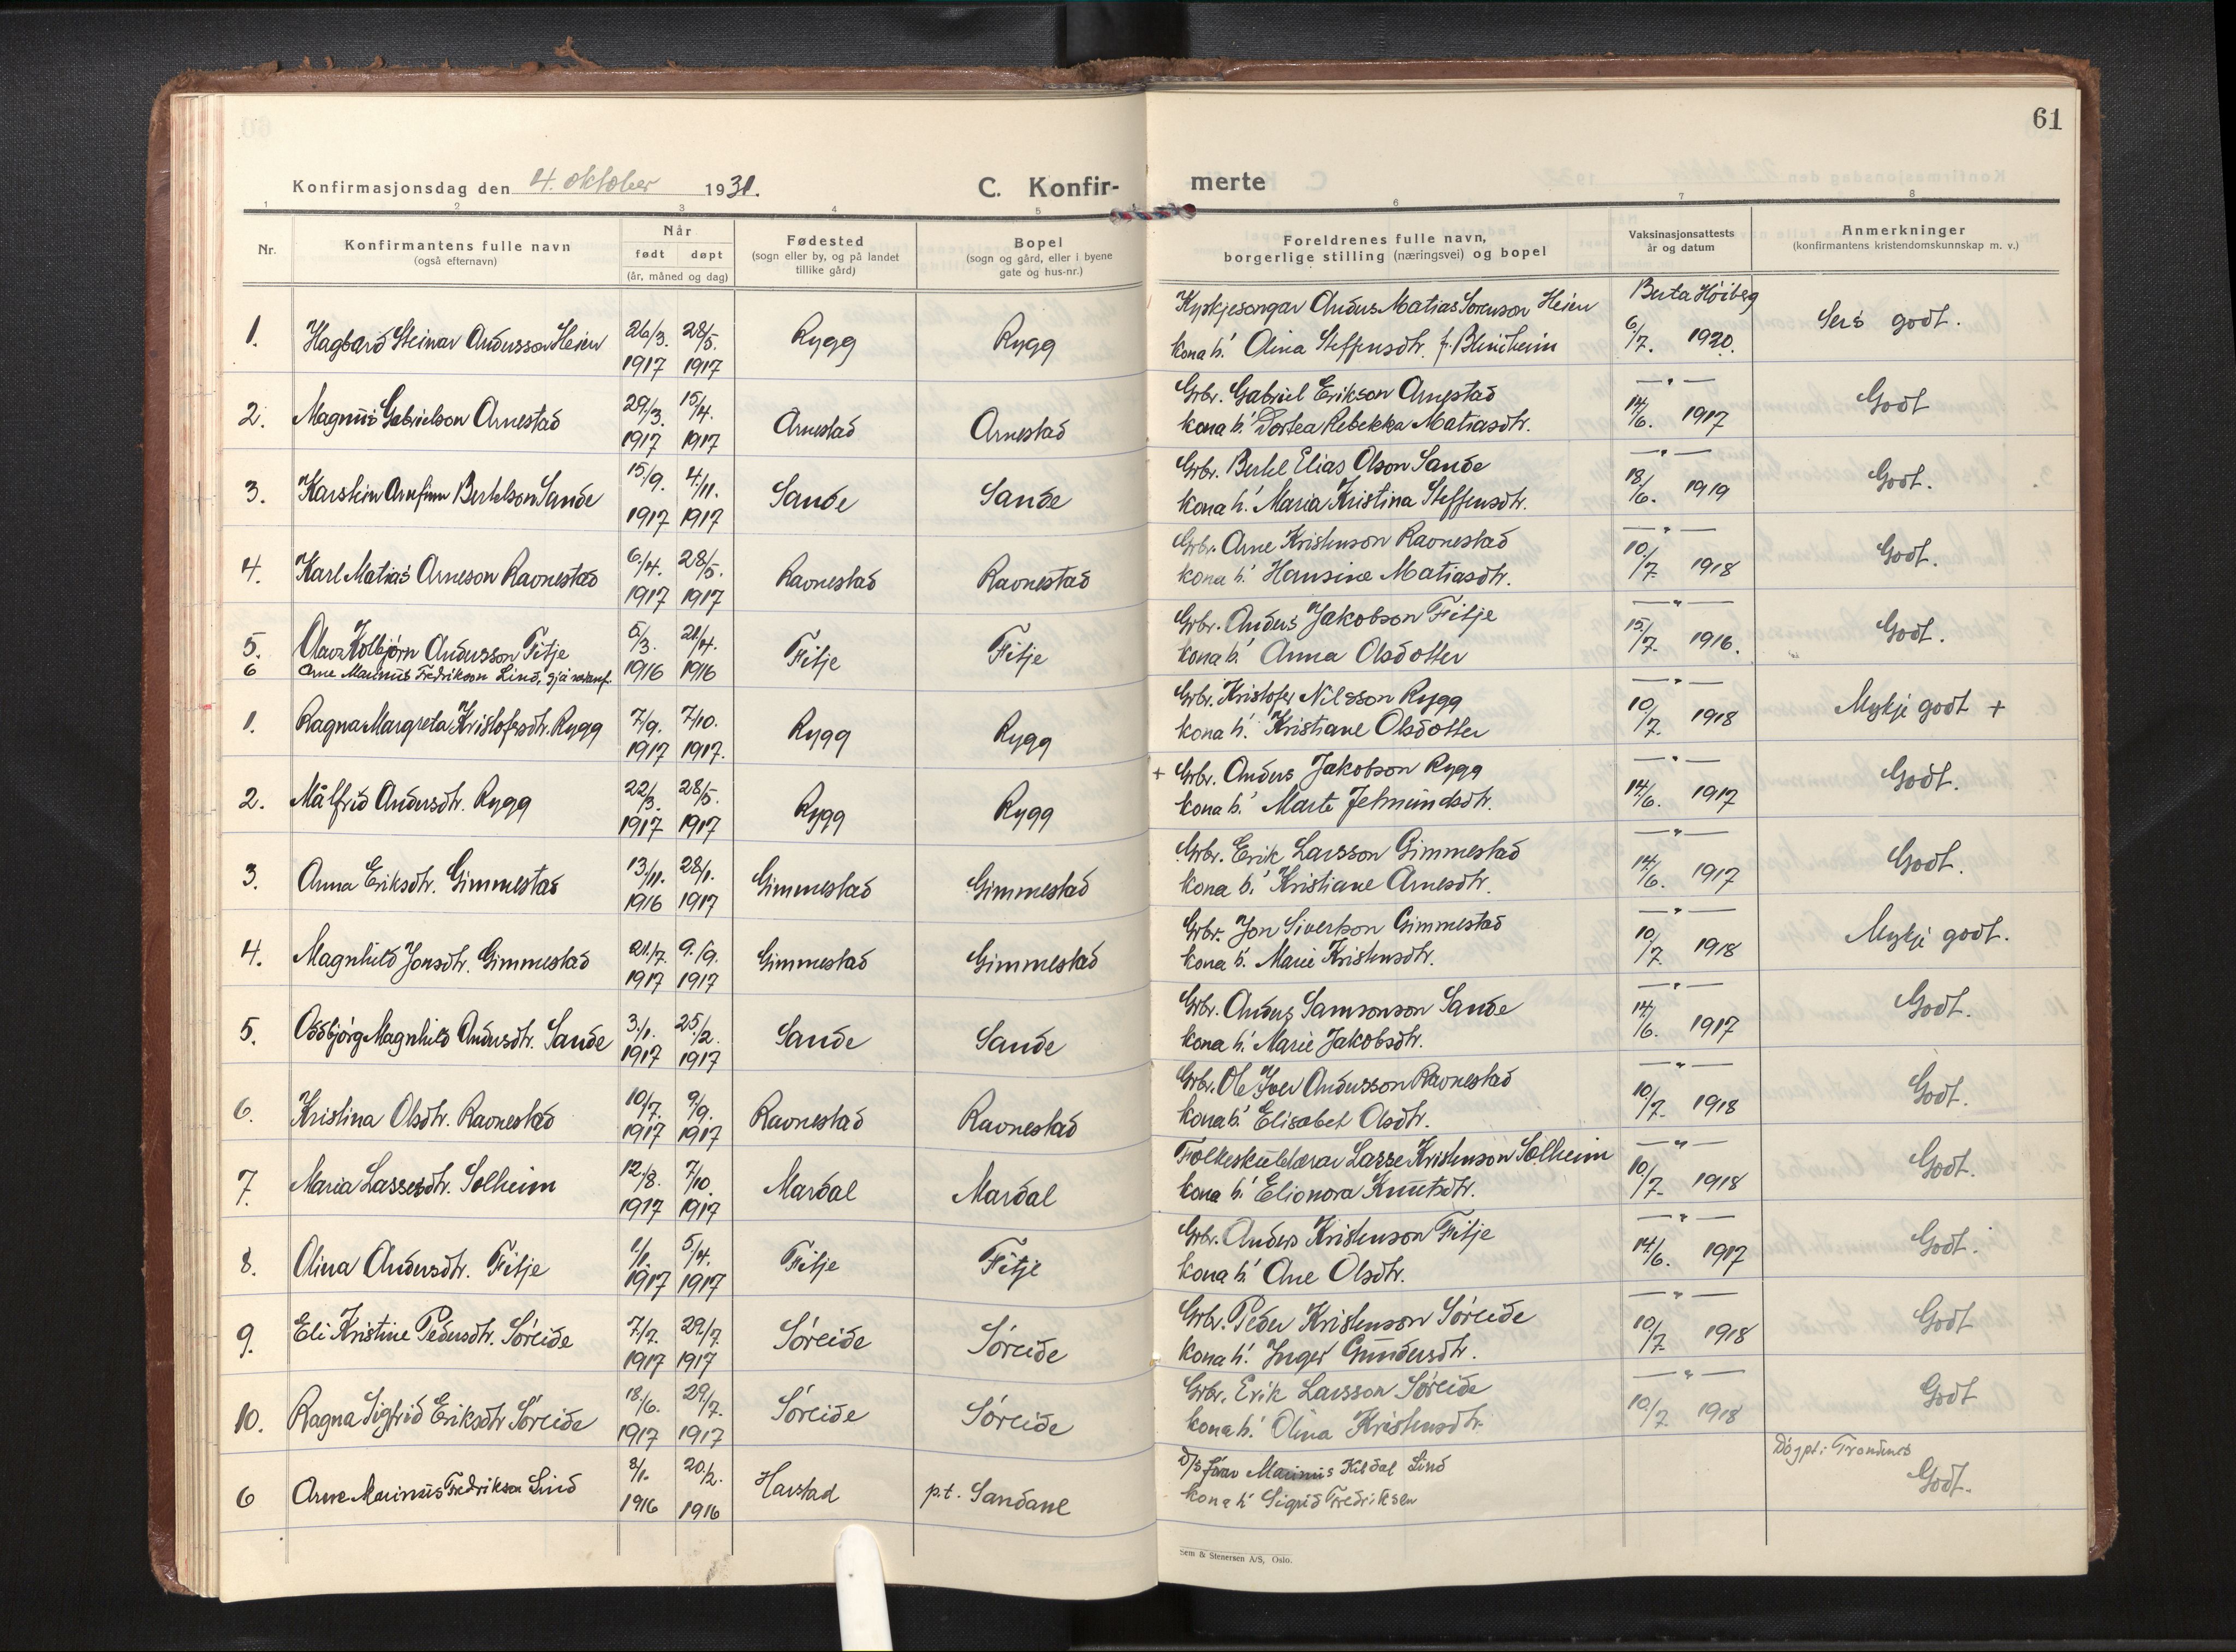 61
Konfirmasjonsdag den 4. oktober 1931.
C. Konfir- merte
1 2 3 4 5 6 7 8
Nr.
Konfirmantens fulle navn
(også efternavn)
Når
født døpt
(år, måned og dag)
Fødested
(sogn eller by, og på landet
tillike gård)
Bopel
(sogn og gård, eller i byene
gate og hus-nr.)
Foreldrenes fulle navn,
borgerlige stilling (næringsvei) og bopel
Vaksinasjonsattests
år og datum
Anmerkninger
(konfirmantens kristendomskunnskap m. v.)
Kyrkjesongar Anders Matias Sørenson Heien Berta Höiberg
1. Hagbard Steinar Andersson Heien 26/3. 28/5. Rygg Rygg 6/7. 1920. Sers godt.
1917 1917 kona h! Olina Steffensdtr. f. Blindheim
Grbr. Gabriel Erikson Arnestad — " —
2. Magnus Gabrielson Arnestad 29/3. 15/4. Arnestad Arnestad 14/6. 1917 Godt
1917 1917 kona h! Dortea Rebekka Matiasdtr.
Grbr. Bertel Elias Olson Sande — " —
3. Karstein Arnfinn Bertelson Sande 15/9. 4/11. Sande Sande 18/6. 1919 Godt.
1917 1917 kona h! Maria Kristina Steffensdtr.
Grbr. Arne Kristenson Ravnestad — " —
4. Karl Matias Arneson Ravnestad 6/4. 28/5. Ravnestad Ravnestad 10/7. 1918 Godt.
1917 1917 kona h! Hansine Matiasdtr.
Grbr. Anders Jakobson Fitje — " —
5. Olav Kolbjörn Andersson Fitje 5/3. 21/4. Fitje Fitje 15/7. 1916. Godt.
1916 1916 kona h! Anna Olsdotter
6 Arne Marinus Fredrikson Lind, sjå nedanf.
Grbr. Kristofer Nilsson Rygg — " —
1. Ragna Margreta Kristofersdtr. Rygg 7/9. 7/10. Rygg Rygg 10/7. 1918 Mykje godt +
1917 1917. kona h! Kristiane Olsdotter
+ Grbr. Anders Jakobson Rygg — " —
2. Målfrid Andersdtr. Rygg 22/3. 28/5. Rygg Rygg 14/6. 1917 Godt.
1917 1917 kona h! Marte Jetmundsdtr.
Grbr. Erik Larsson Gimmestad — " —
3. Anna Eriksdtr. Gimmestad 13/11. 28/1. Gimmestad Gimmestad 14/6. 1917 Godt.
1916 1917 kona h! Kristiane Arnesdtr.
Grbr. Jon Sivertson Gimmestad — " —
4. Magnhild Jonsdtr. Gimmestad 21/7. 9/9. Gimmestad Gimmestad 10/7. 1918 Mykje godt.
1917 1917 kona h! Marie Kristensdtr.
Grbr. Anders Samsonson Sande — " —
5. Oddbjörg Magnhild Andersdtr. Sande 3/1. 25/2. Sande Sande 14/6. 1917 Godt.
1917 1917 kona h! Marie Jakobsdtr.
Grbr. Ole Iver Andersson Ravnestad — " —
6. Kristina Olsdtr. Ravnestad 10/7. 9/9. Ravnestad Ravnestad 10/7. 1918 Godt.
1917 1917 kona h! Elisabet Olsdtr.
Folkeskulelærar Lasse Kristenson Solheim — " —
7. Maria Lassesdtr. Solheim 12/8. 7/10. Mardal Mardal 10/7. 1918 Godt.
1917 1917 kona h! Elionora Knutsdtr.
Grbr. Anders Kristenson Fitje — " —
8. Olina Andersdtr. Fitje 1/1. 5/4. Fitje Fitje 14/6. 1917 Godt.
1917 1917 kona h! Ane Olsdtr.
Grbr. Peder Kristenson Söreide — " —
9. Eli Kristine Pedersdtr. Söreide 7/7. 29/7. Söreide Söreide 10/7. 1918 Godt
1917 1917 kona h! Inger Gundersdtr.
Grbr. Erik Larsson Söreide — " —
10. Ragna Sigfrid Eriksdtr Söreide 18/6. 29/7. Söreide Söreide 10/7 1918 Godt
1917 1917 kona h! Olina Kristensdtr.
Marinus Kildal Lind Döypt i Trondenes
6 Arne Marinus Fredrikson Lind 8/1. 20/2. Harstad p.t. Sandane Godt.
1916 1916 kona h! Sigrid Fredriksen
Sem & Stenersen A/S, Oslo.